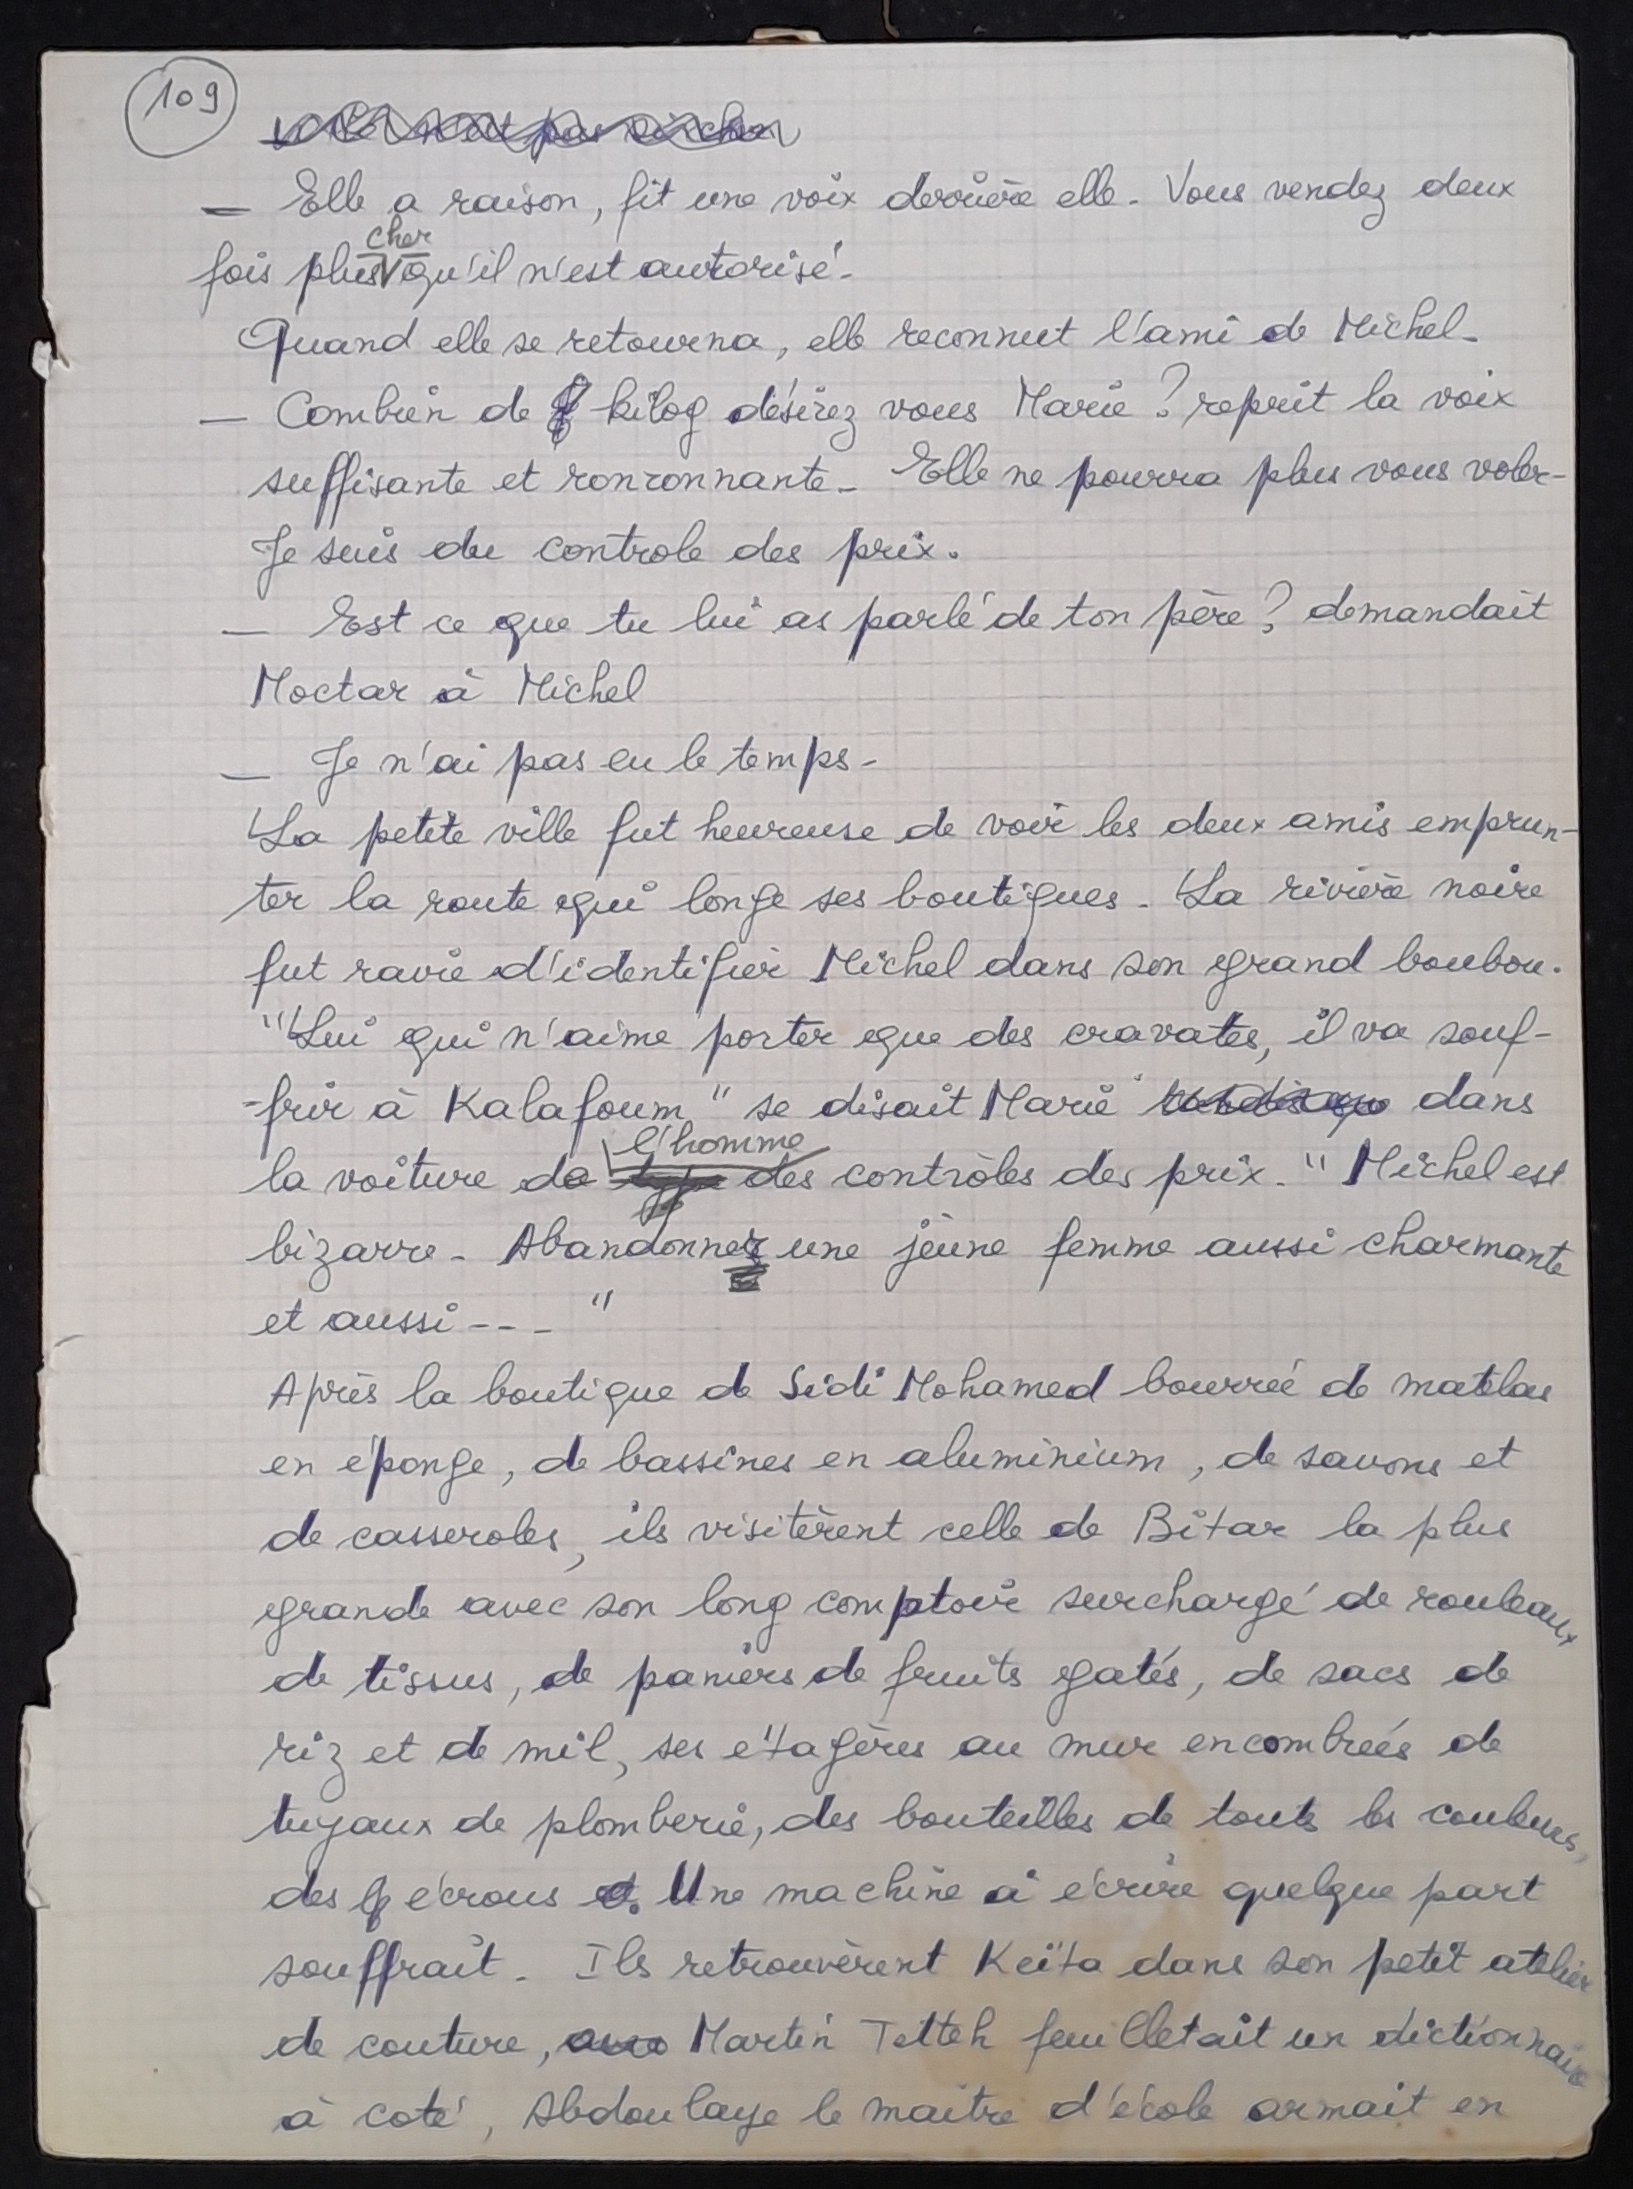 109
— Elle a raison, fit une voix derrière elle. Vous vendez deux
cher
fois plus qu'il n'est autorisé.
Quand elle se retourna, elle reconnut l'ami de Michel.
— Combien de kilog désirez vous Marie ? reprit la voix
suffisante et ronronnante. Elle ne pourra plus vous voler.
Je suis du controle des prix.
— Est ce que tu lui as parlé de ton père ? demandait
Moctar à Michel
— Je n'ai pas eu le temps.
La petite ville fut heureuse de voir les deux amis emprun-
ter la route qui longe ses boutiques. La rivière noire
fut ravie d'identifier Michel dans son grand boubou.
"Lui qui n'aime porter que des cravates, il va souf-
-frir à Kalafoum" se disait Marie dans
l'homme
la voiture de des contrôles des prix. "Michel est
bizarre. Abandonner une jeune femme aussi charmante
et aussi --- "
Après la boutique de Sidi Mohamed bourrée de matelas
en éponge, de bassines en aluminium, de savons et
de casseroles, ils visitèrent celle de Bitar la plus
grande avec son long comptoir surchargé de rouleaux
de tissus, de paniers de fruits gatés, de sacs de
riz et de mil, ses étagères au mur encombrées de
tuyaux de plomberie, des bouteilles de toutes les couleurs,
des écrous. Une machine à écrire quelque part
souffrait. Ils retrouvèrent Keïta dans son petit atelier
de couture, Martin Tetteh feuilletait un dictionnaire
à coté, Abdoulaye le maitre d'école armait en